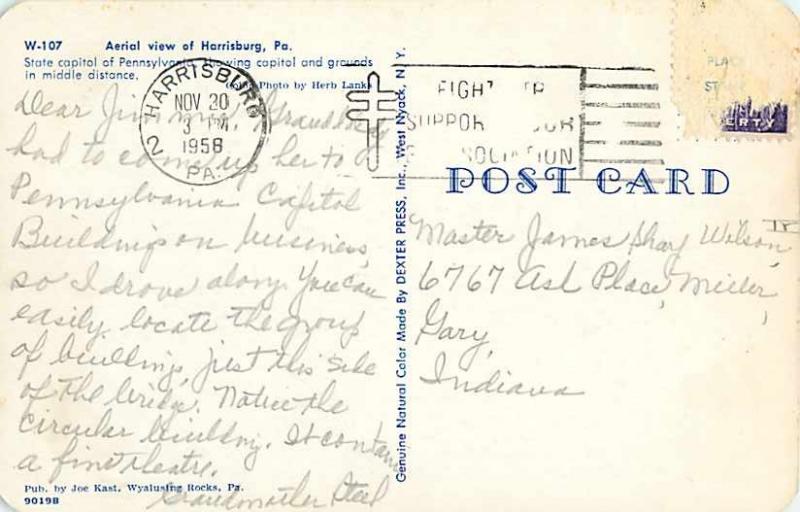 W-107 Aerial view of Harrisburg, Pa.
State capitol of Pennsylvania, showing capitol and grounds
in middle distance.
Color Photo by Herb Lanks
HARRISBURG
NOV 20
3 PM
1958
2 PA.
FIGHT TB
SUPPORT YOUR
ASSOCIATION
PLACE
ST
ERTY
POST CARD
Dear Jim my, Grandbody
had to come up her to
Pennsylvania Capitol
Buildings on business,
so I drove along. You can
easily locate the group
of buildings just this side
of the bridge. Notice the
circular building. It contains
a fine theatre.
Grandmother Steel
Master James Sharp Wilson, IV
6767 Ash Place, Miller,
Gary,
Indiana
Genuine Natural Color Made By DEXTER PRESS, Inc., West Nyack, N.Y.
Pub. by Joe Kast, Wyalusing Rocks, Pa.
9019B